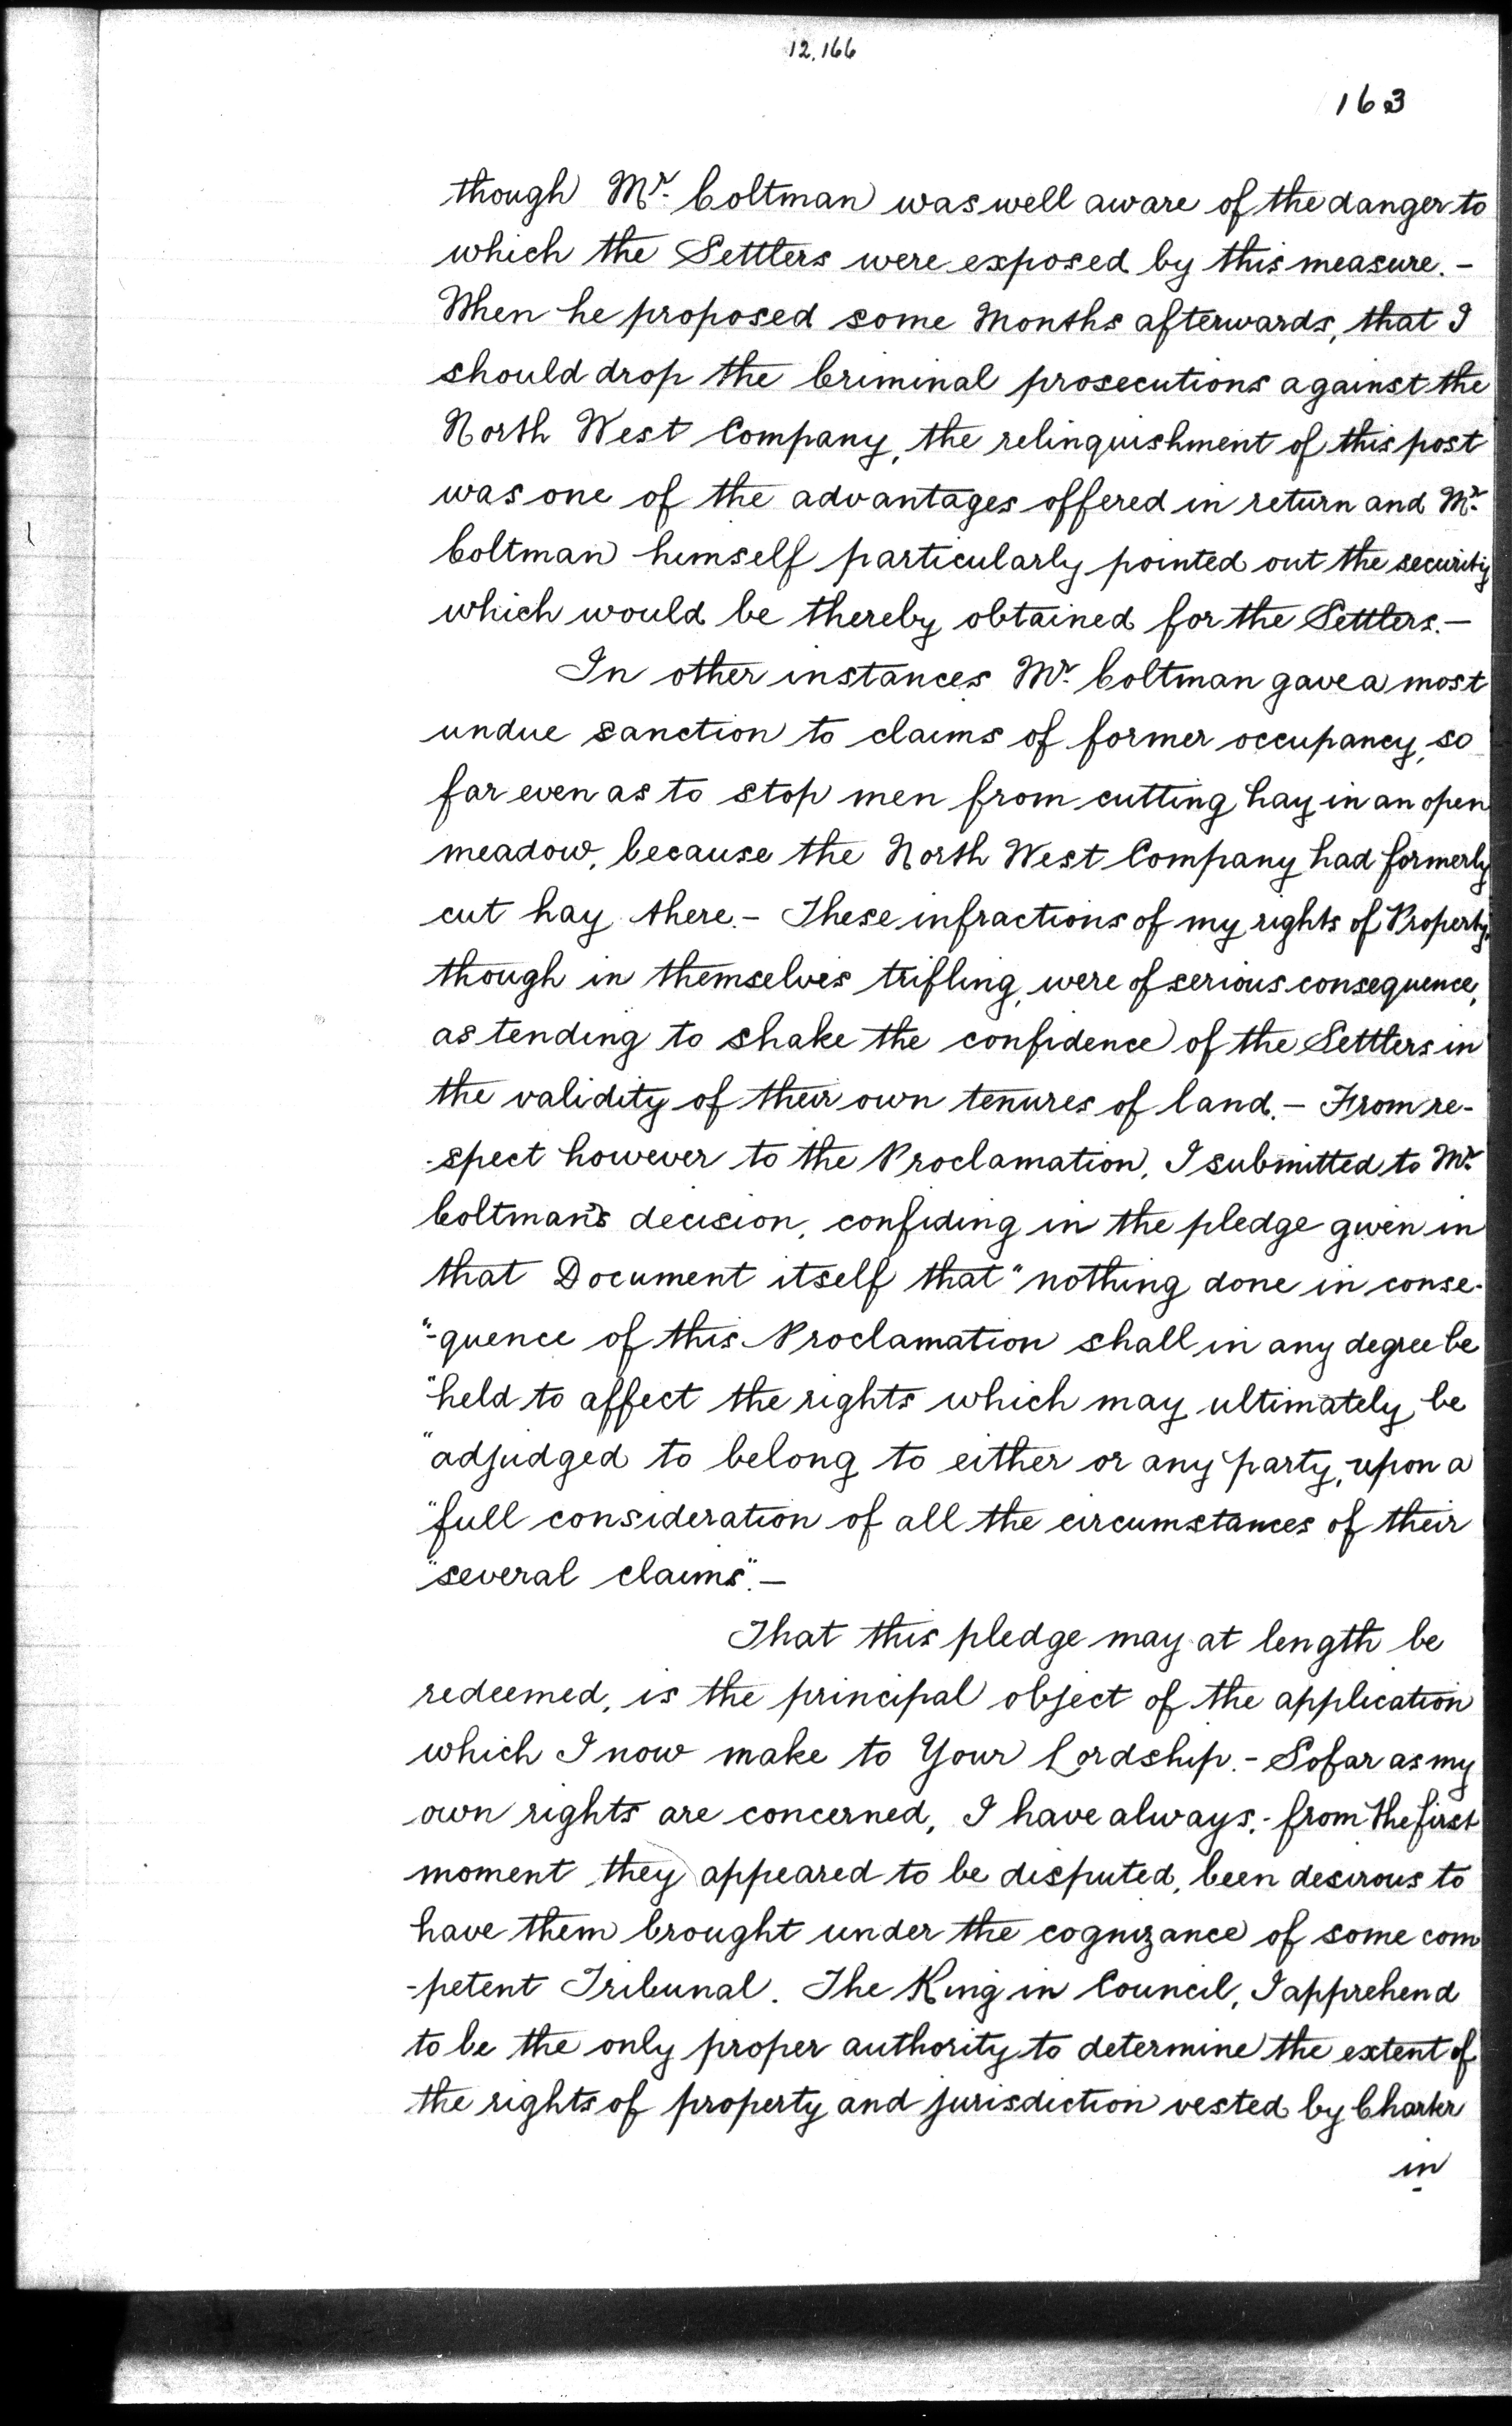 12.166
163
though Mr. Coltman was well aware of the danger to
which the Settlers were exposed by this measure. -
When he proposed some Months afterwards, that I
should drop the Criminal prosecutions against the
North West Company, the relinquishment of this post
was one of the advantages offered in return and Mr.
Coltman himself particularly pointed out the security
which would be thereby obtained for the Settlers. -
In other instances Mr. Coltman gave a most
undue sanction to claims of former occupancy, so
far even as to stop men from cutting hay in an open
meadow, because the North West Company had formerly
cut hay there. - These infractions of my rights of Property,
though in themselves trifling, were of serious consequence,
as tending to shake the confidence of the Settlers in
the validity of their own tenures of land. - From re-
-spect however to the Proclamation, I submitted to Mr.
Coltman's decision, confiding in the pledge given in
that Document itself that "nothing done in conse-
"-quence of this Proclamation shall in any degree be
"held to affect the rights which may ultimately be
"adjudged to belong to either or any party, upon a
"full consideration of all the circumstances of their
"several claims". -
That this pledge may at length be
redeemed, is the principal object of the application
which I now make to Your Lordship. - So far as my
own rights are concerned, I have always, - from the first
moment they appeared to be disputed, been desirous to
have them brought under the cognizance of some com
-petent Tribunal. The King in Council, I apprehend
to be the only proper authority to determine the extent of
the rights of property and jurisdiction vested by Charter
in